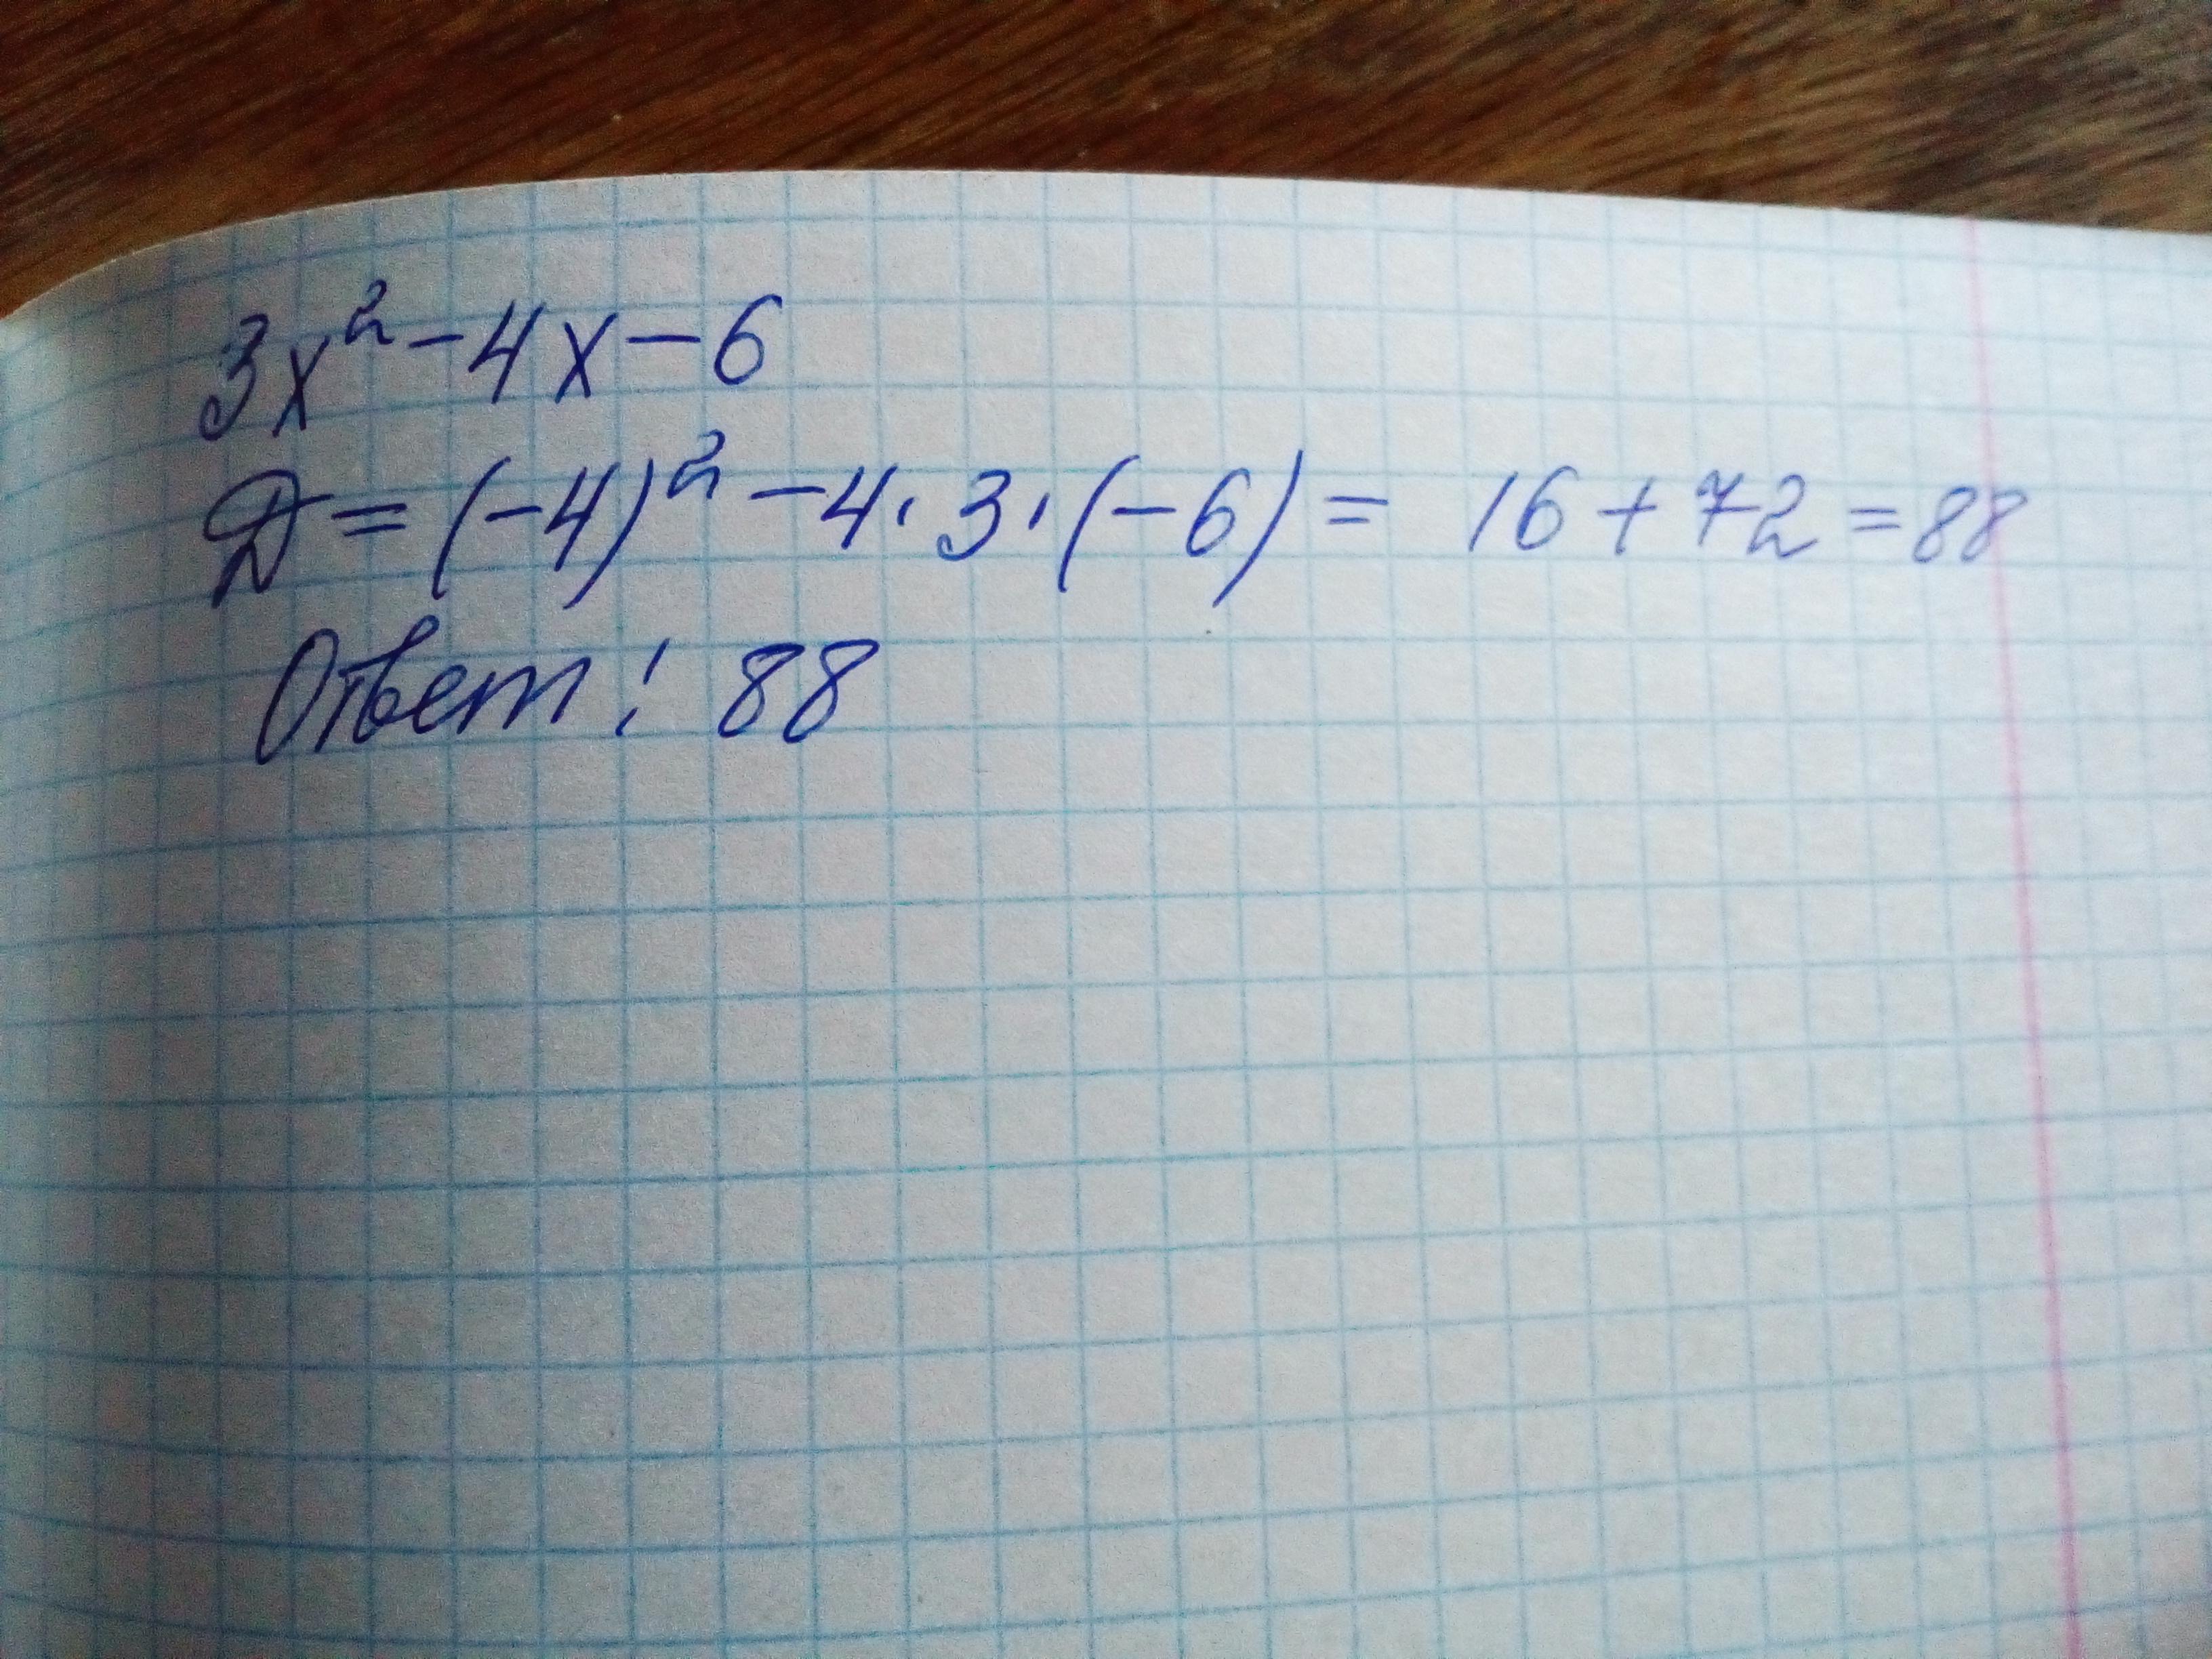 3x² - 4x - 6
Д = (-4)² - 4 · 3 · (-6) = 16 + 72 = 88
Ответ: 88